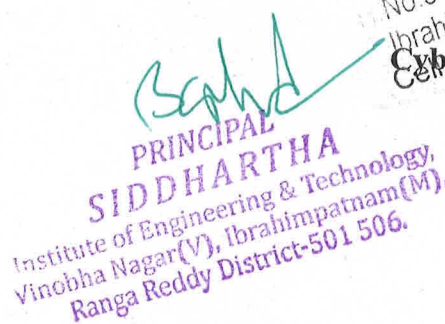 No.
Ibrah
Cyb
Cen
PRINCIPAL
SIDDHARTHA
Institute of Engineering & Technology,
Vinobha Nagar(V), Ibrahimpatnam(M)
Ranga Reddy District-501 506.